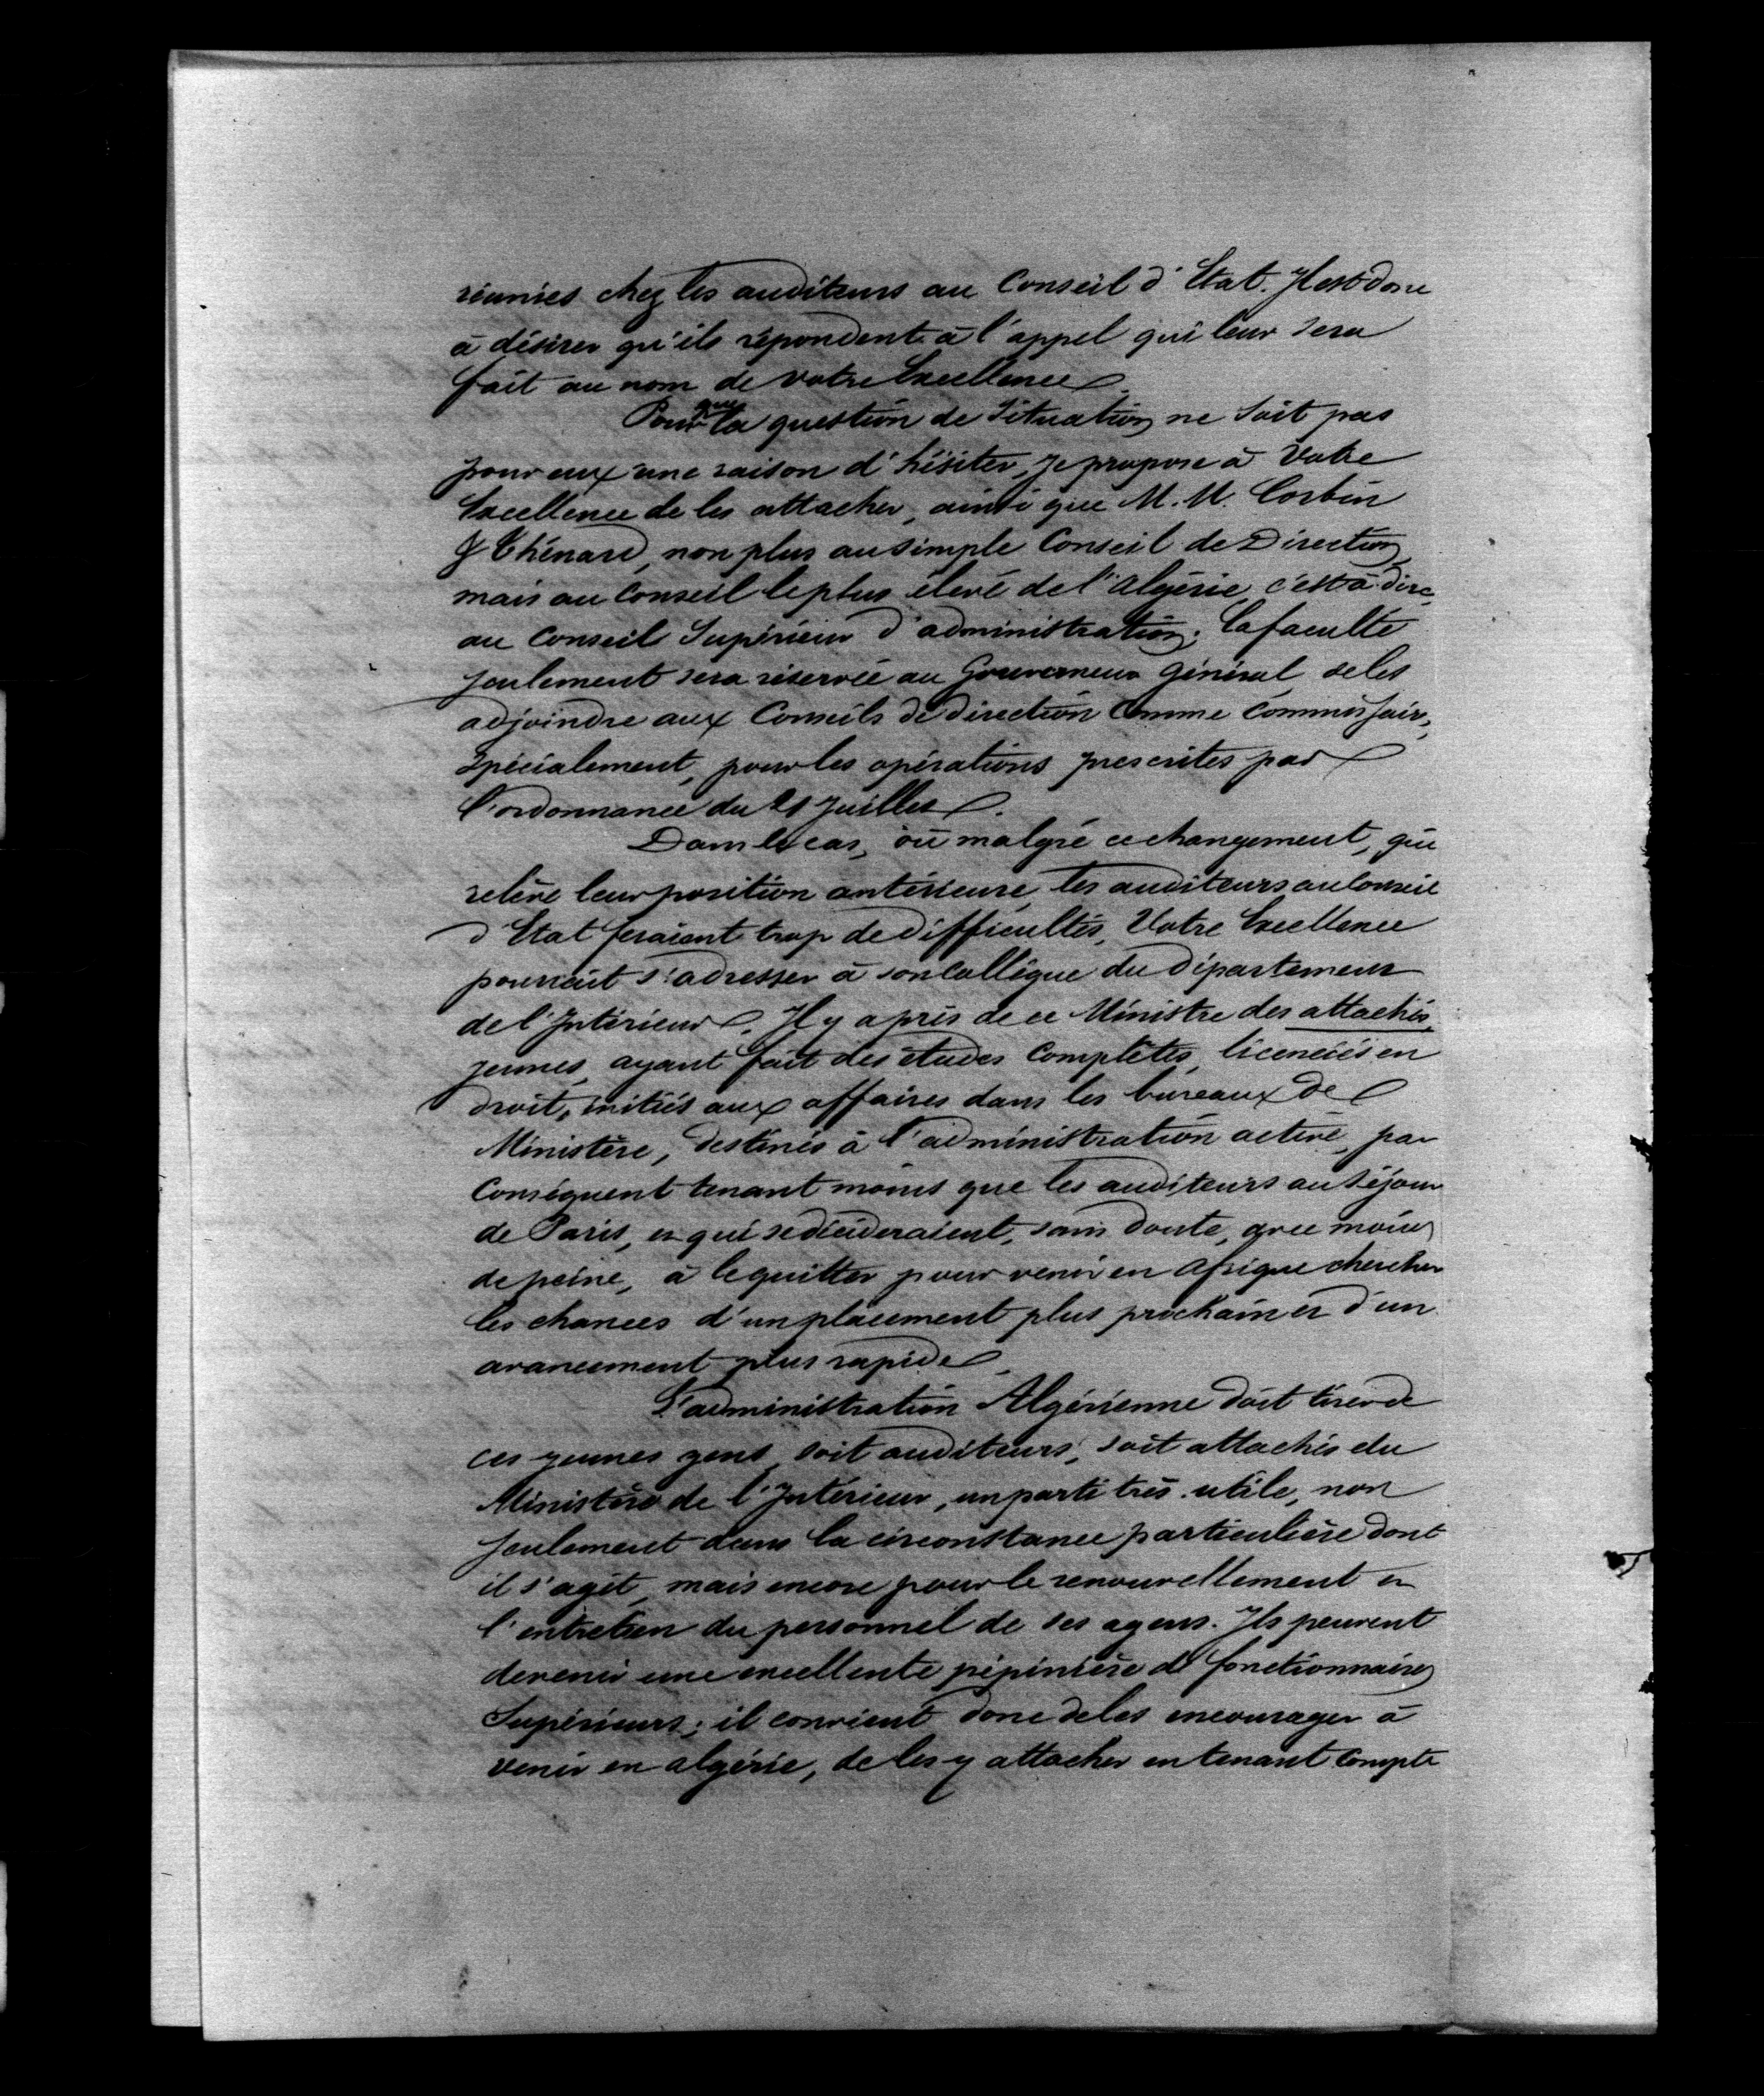 réunies chez les auditeurs au Conseil d'Etat. Il est donc
à désirer qu'ils répondent à l'appel qui leur sera
fait au nom de votre Excellence.
Pour que la question de situation ne soit pas
pour eux une raison d'hésiter, je propose à Votre
Excellence de les attacher, ainsi que M. M. Corbin
& Thénard, non plus au simple Conseil de Direction,
mais au Conseil le plus élevé de l'Algérie, c'est-à-dire,
au Conseil Supérieur d'administration; la faculté
seulement sera réservée au Gouverneur Général de les
adjoindre aux Conseils de direction comme commissair,
spécialement, pour les opérations prescrites par
l'ordonnance du 21 Juillet.
Dans le cas, où malgré ce changement, qui
relève leur position antérieure, les auditeurs au Conseil
d'Etat feraient trop de difficultés, Votre Excellence
pourrait s'adresser à son Collègue du département
de l'Intérieur. Il y a près de ce Ministre des attachés,
jeunes, ayant fait des études complètes, licenciés en
droit, initiés aux affaires dans les bureaux de
Ministère, destinés à l'administration active, par
conséquent tenant moins que les auditeurs au séjour
de Paris, et qui se décideraient, sans doute, avec moins
de peine, à le quitter pour venir en Afrique chercher
les chances d'un placement plus prochain et d'un
avancement plus rapide.
L'administration Algérienne doit tirer de
ces jeunes gens, soit auditeurs, soit attachés du
Ministère de l'Intérieur, un parti très utile, non
seulement dans la circonstance particulière dont
il s'agit, mais encore pour le renouvellement et
l'entretien du personnel de ses agens. Ils peuvent
devenir une excellente pépinière de fonctionnaires
Supérieurs; il convient donc de les encourager à
venir en algérie, de les y attacher en tenant compte